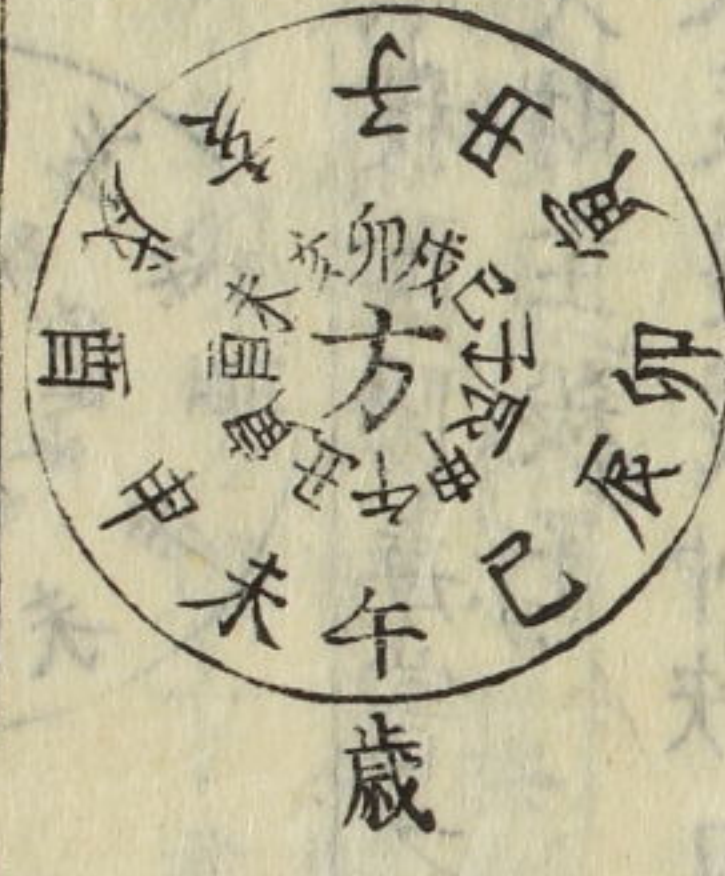 子丑寅卯辰巳午未申酉戌亥
卯戌巳子辰申午丑寅酉未亥
方
歳